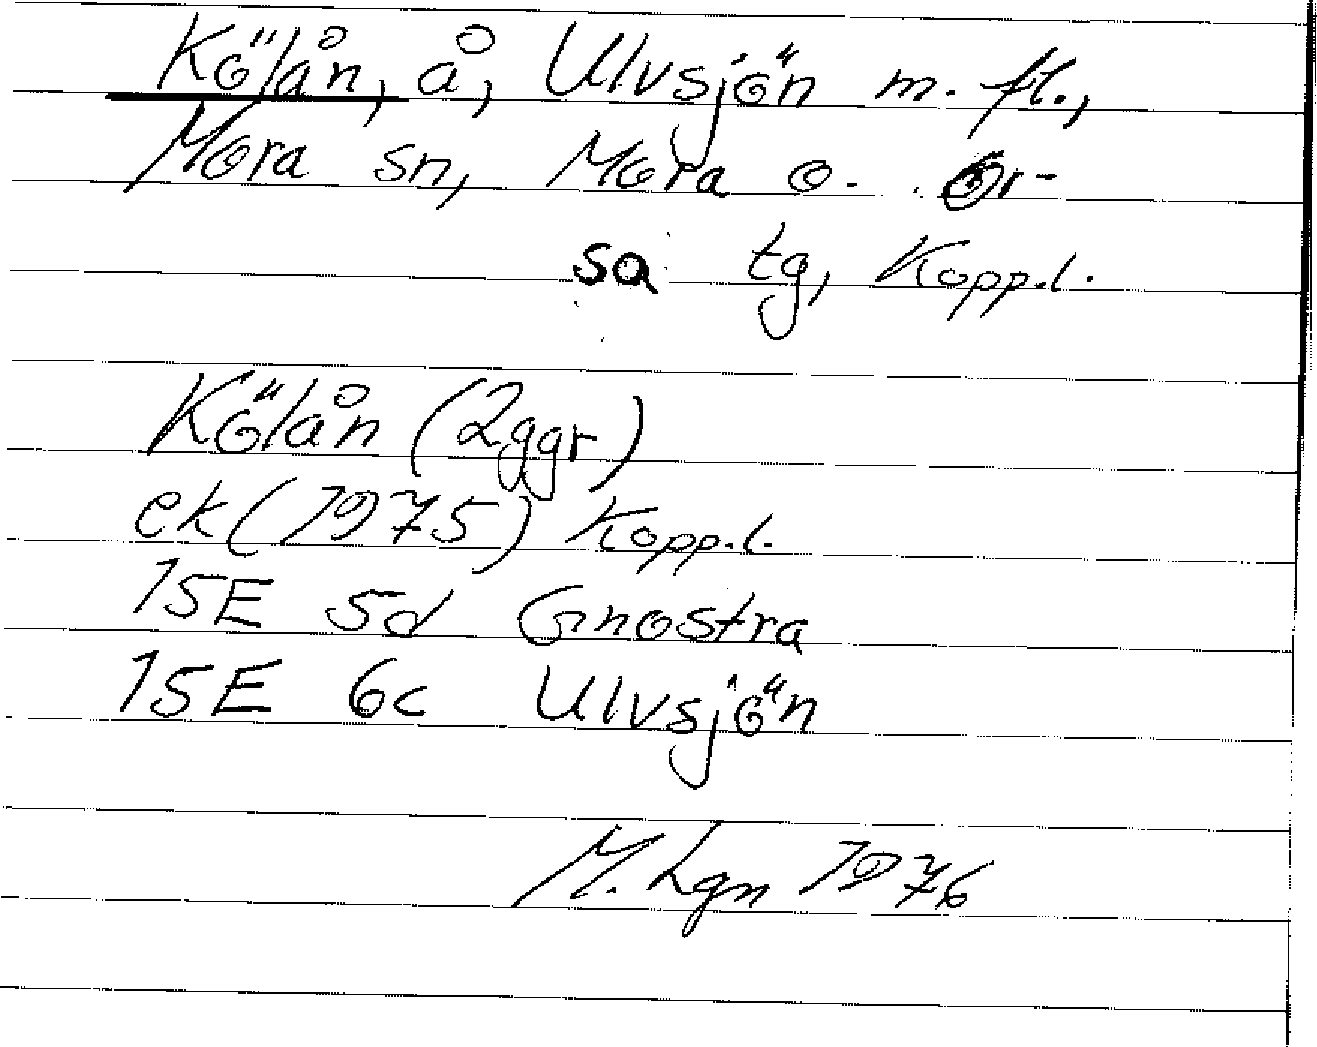 Kölån, å, Ulvsjön m. fl.,
Mora sn, Mora o. Or-
sa tg, Kopp.l.
Kölån (2ggr)
ek (1975) Kopp.l.
15E 5d Gnostra
15E 6c Ulvsjön
M. Lgn 1976